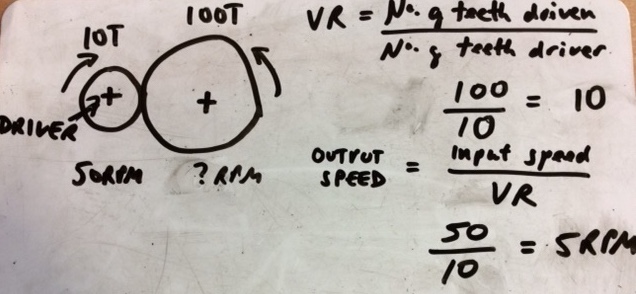 10T
100T
DRIVER
+
+
50RPM
? RPM
VR = No. of teeth driven
No. of teeth driver
100
10
= 10
OUTPUT
SPEED
= Input speed
VR
50
10
= 5RPM